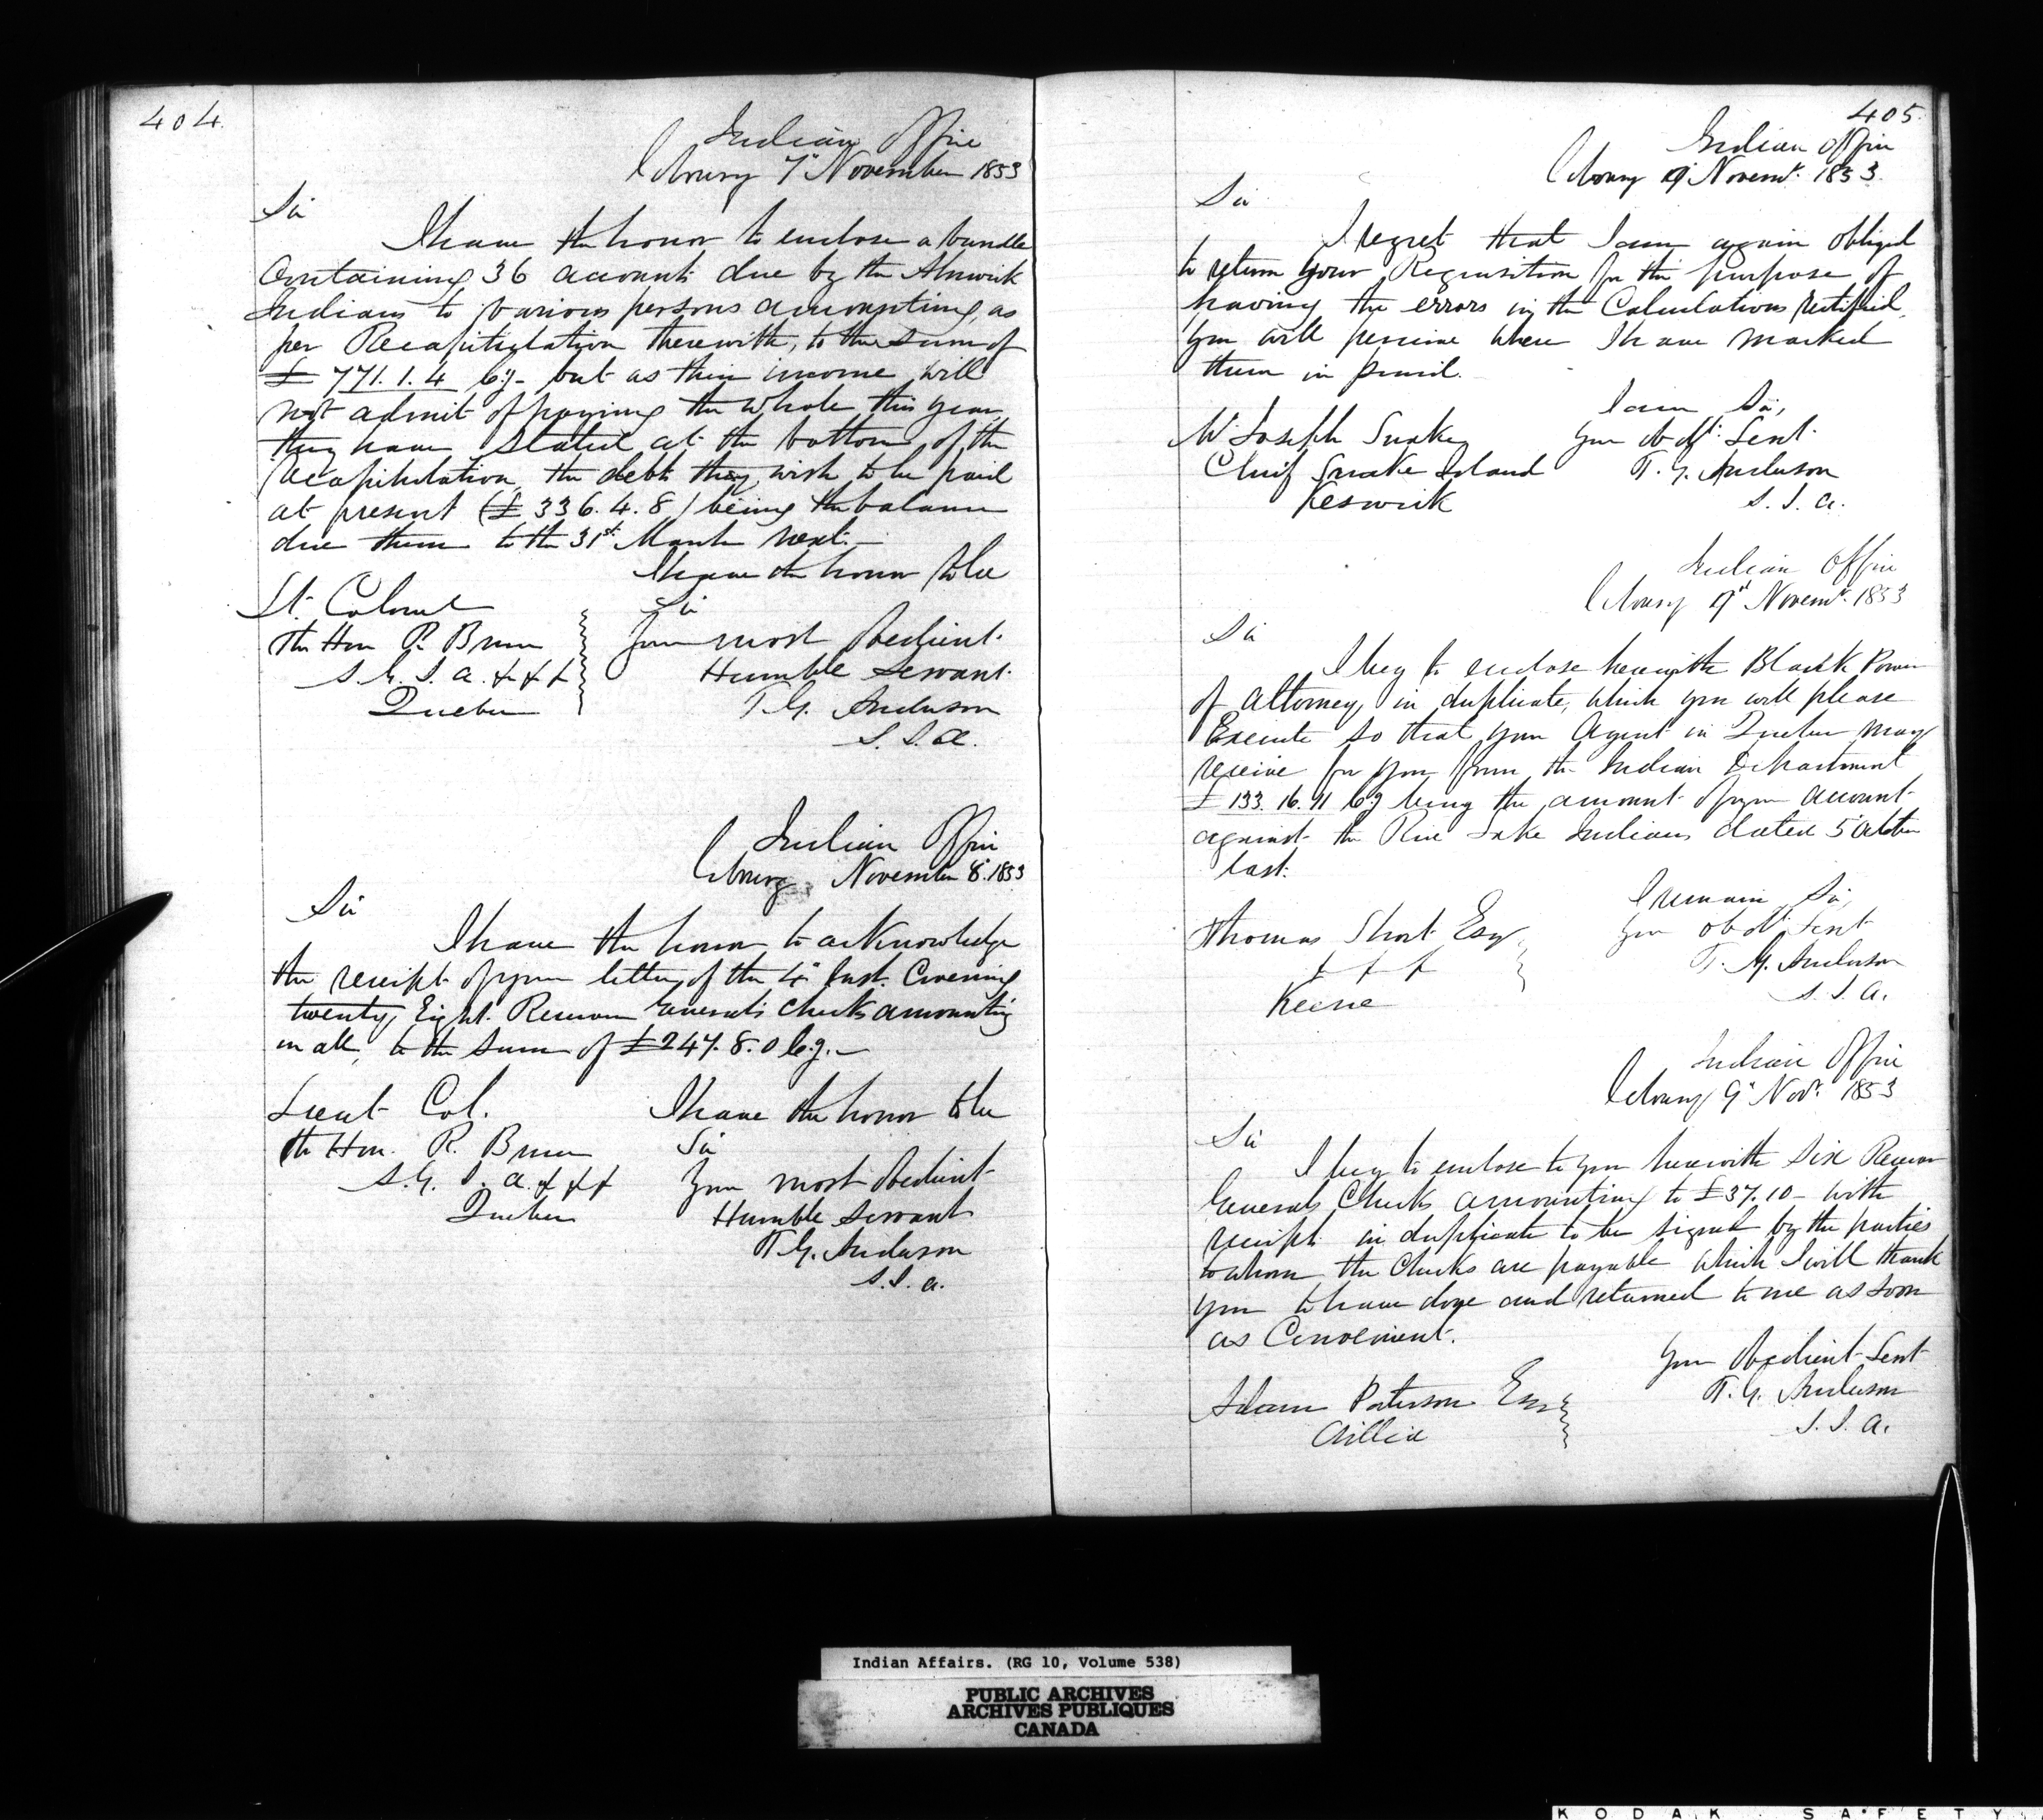 404
Indian Office
Cobourg 7" November 1853
Sir
I have the honor to enclose a bundle
Containing 36 accounts due by the Alnwick
Indians to various persons amounting, as
per Recapitulation therewith, to the sum of
£771.1.4 Cy- but as their income will
not admit of paying the whole this year
they have stated at the bottom of the
recapitulation the debts they wish to be paid
at present (£336.4.8) being the balance
due them to the 31st March next.-
I have the honor to be
Sir
Lt. Colonel
The Hon R. Bruce
S. G. I. A. &&&
Quebec
Your most Obedient
Humble Servant
T. G. Anderson
S. I. A.
Indian Office
Cobourg November 8" 1853
Sir
I have the honor to acknowledge
the receipt of your letter of the 4" Inst. Covering
twenty Eight Receiver Generals Checks amounting
in all, to the sum of £247.8.0 Cy.-
Lieut Col.
The Hon. R. Bruce
S. G. I. A. &&&
Quebec
I have the honor to be
Sir
Your most Obedient
Humble Servant
T. G. Anderson
S. I. A.
405
Indian Office
Cobourg 9" Novemr. 1853.
Sir
I regret that I am again obliged
to return your Requisition for the purpose of
having the errors in the Calculations rectified,
You will perceive where I have marked
them in pencil.
I am Sir,
Your obdt. Sevt.
T. G. Anderson
S. I. A.
Mr. Joseph Snake
Chief Snake Island
Keswick
Indian Office
Cobourg 9" Novemr. 1853
Sir
I beg to enclose herewith Blank Power
of Attorney, in duplicate, which you will please
Execute so that your Agent in Quebec may
receive for you from the Indian Department
£133.16.11 Cy being the amount of your account
against the Rice Lake Indians dated 5" October
last.
I remain Sir,
Your obdt Sevt
T. G. Anderson
S. I. A.
Thomas Short Esq.
&&&
Keene
Indian Office
Cobourg 9" Novr. 1853
Sir
I beg to enclose to you herewith Six Receiver
Generals Checks amounting to £37.10- with
receipts in duplicate to be signed by the parties
to whom the Checks are payable which I will thank
you to have done and returned to me as soon
as Convenient.
Your Obedient Sevt
T. G. Anderson
S. I. A.
Adam Paterson Esq
Orillia
Indian Affairs. (RG 10, Volume 538)
PUBLIC ARCHIVES
ARCHIVES PUBLIQUES
CANADA
KODAK SAFETY